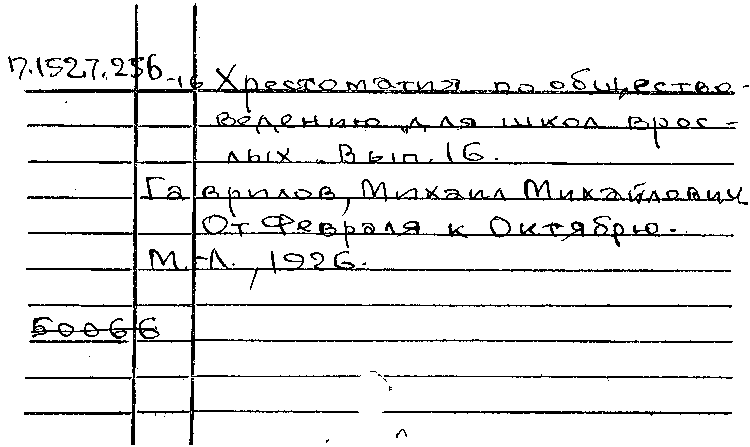 П.1527.256
-16 Хрестоматия по общество-
ведению для школ врос-
лых. Вып. 16.
Гаврилов, Михаил Михайлович
От Февраля к Октябрю.
М.-Л., 1926.
50066